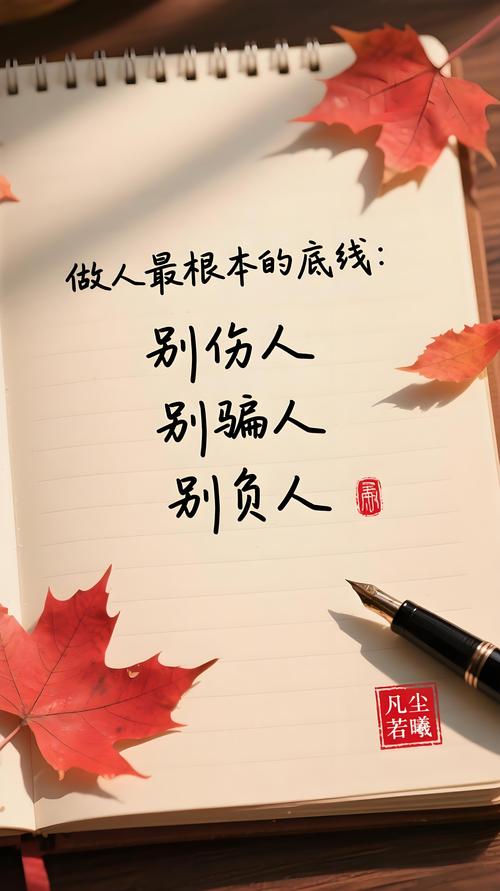 做人最根本的底线：
别伤人
别骗人
别负人
凡尘
若曦